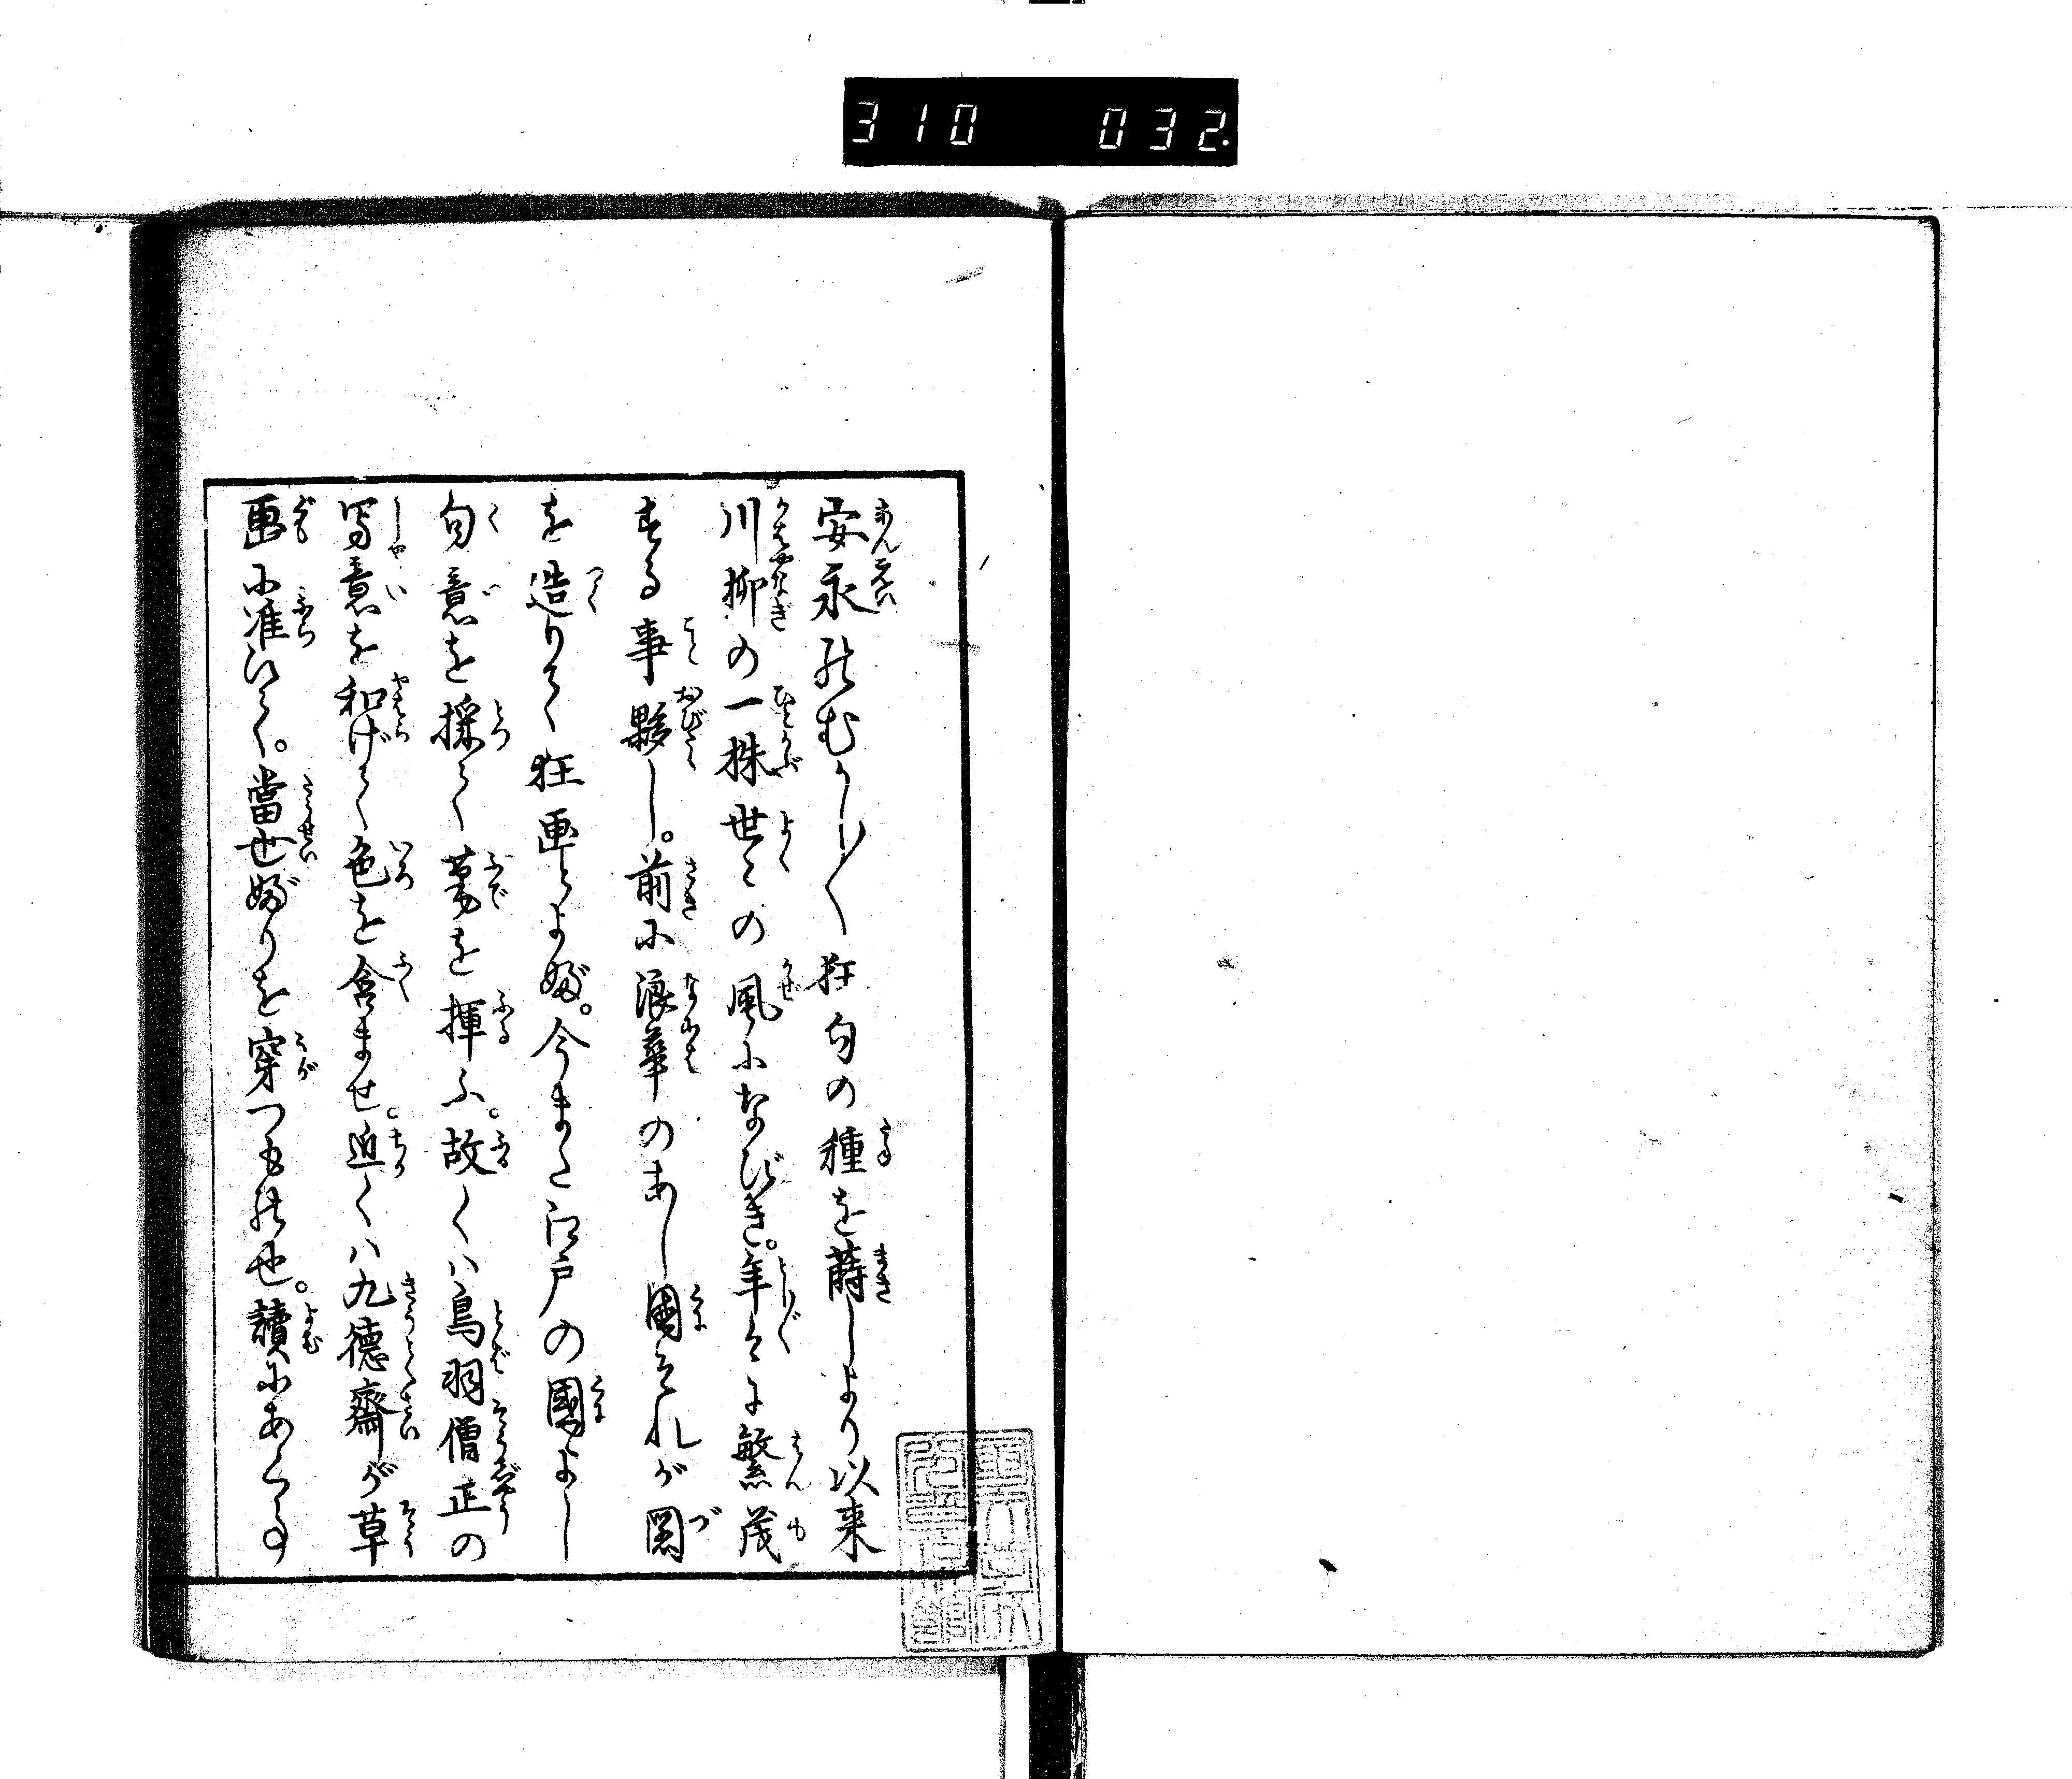 310 032.
安永のむかし〳〵狂句の種を蒔しより以来
川柳の一株世々の風になびき。年々に繁茂
する事夥し。前に浪華のあし國それが圖
を造りて狂画とよぶ。今また江戸の國よし
句意を採て筆を揮ふ。故くハ鳥羽僧正の
写意を和げて色を含ませ。近くハ九徳齋が草
画に准じて。當世ぶりを穿つもの也。讀にあくる